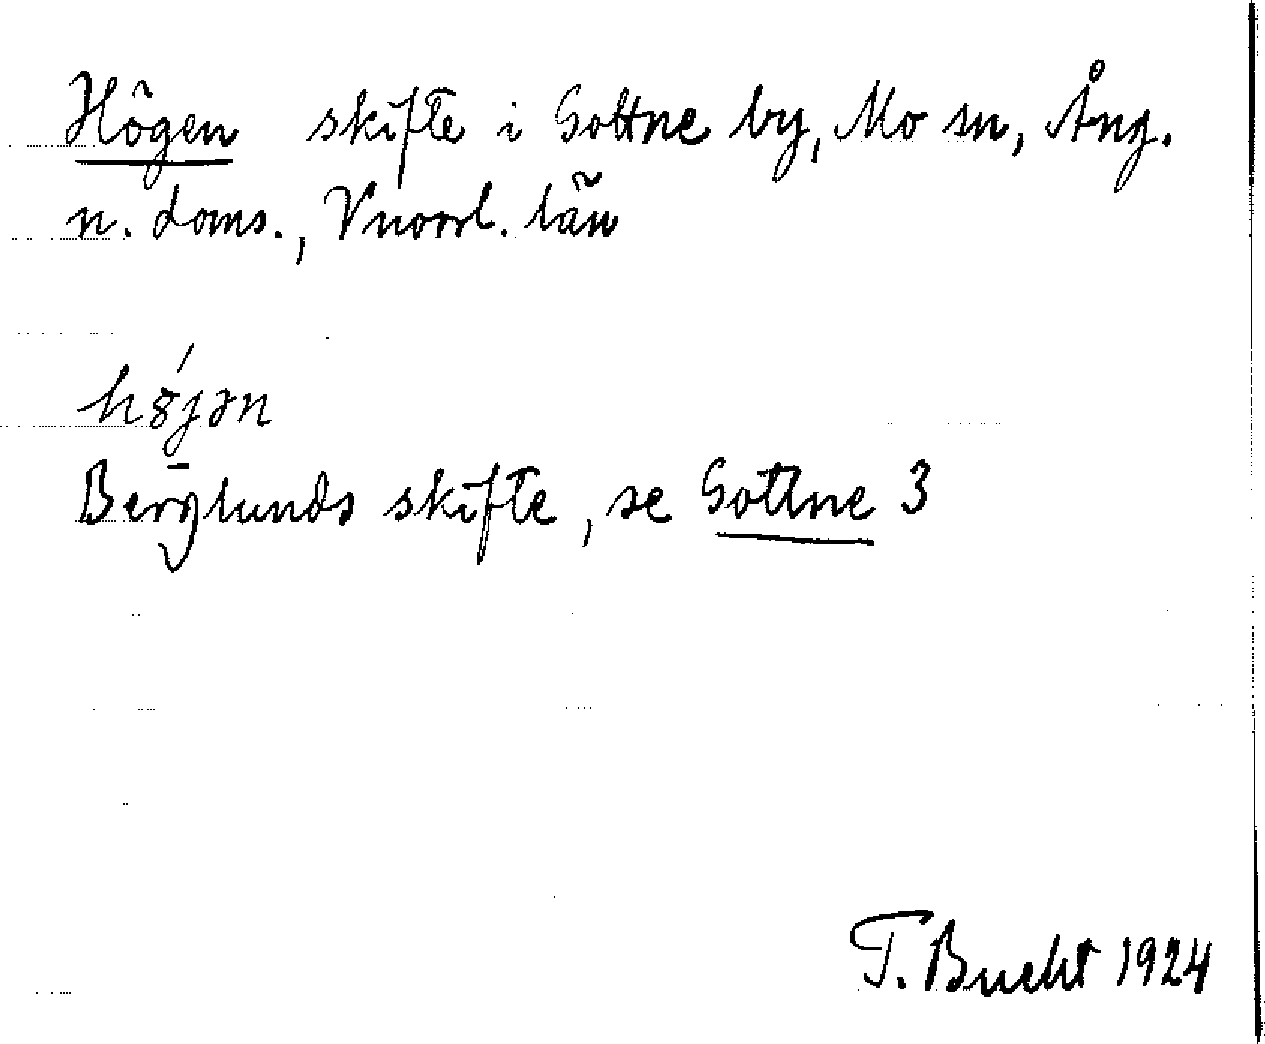 Högen skifte i Gottne by, Mo sn, Ång.
n. doms., Vnorrl. län
hǿjən
Berglunds skifte, se Gottne 3
T. Bucht 1924